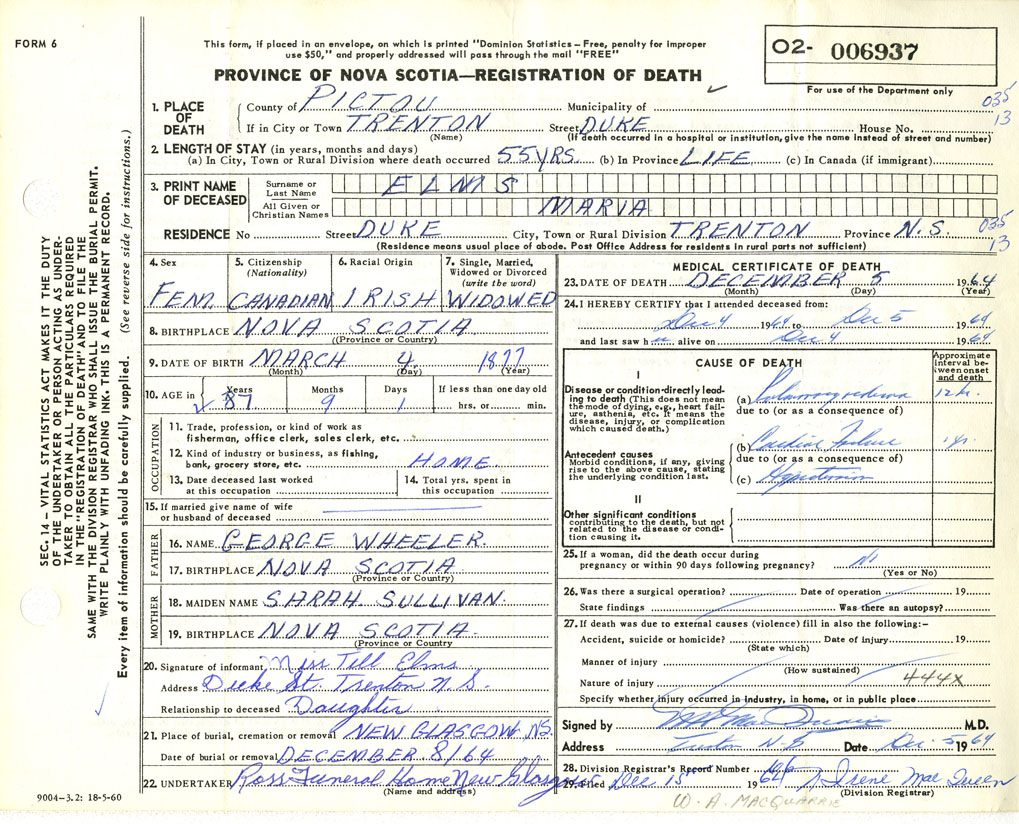 FORM 6
This form, if placed in an envelope, on which is printed "Dominion Statistics – Free, penalty for improper
use $50," and properly addressed will pass through the mail "FREE"
PROVINCE OF NOVA SCOTIA—REGISTRATION OF DEATH
02- 006937
For use of the Department only
035
13
1. PLACE OF DEATH
County of PICTOU Municipality of
If in City or Town TRENTON Street DUKE House No.
(Name) (If death occurred in a hospital or institution, give the name instead of street and number)
2. LENGTH OF STAY (in years, months and days)
(a) In City, Town or Rural Division where death occurred 55 YRS. (b) In Province LIFE (c) In Canada (if immigrant)
3. PRINT NAME OF DECEASED
Surname or Last Name ELMS
All Given or Christian Names MARIA
RESIDENCE No Street DUKE City, Town or Rural Division TRENTON Province N.S.
035
13
(Residence means usual place of abode. Post Office Address for residents in rural parts not sufficient)
4. Sex
FEM
5. Citizenship
(Nationality)
CANADIAN
6. Racial Origin
IRISH
7. Single, Married,
Widowed or Divorced
(write the word)
WIDOWED
8. BIRTHPLACE NOVA SCOTIA
(Province or Country)
9. DATE OF BIRTH MARCH 4 1877
(Month) (Day) (Year)
10. AGE in
Years Months Days If less than one day old
87 9 1 hrs. or min.
OCCUPATION
11. Trade, profession, or kind of work as
fisherman, office clerk, sales clerk, etc.
12. Kind of industry or business, as fishing,
bank, grocery store, etc. HOME
13. Date deceased last worked
at this occupation
14. Total yrs. spent in
this occupation
15. If married give name of wife
or husband of deceased
FATHER
16. NAME GEORGE WHEELER
17. BIRTHPLACE NOVA SCOTIA
(Province or Country)
MOTHER
18. MAIDEN NAME SARAH SULLIVAN
19. BIRTHPLACE NOVA SCOTIA
(Province or Country
20. Signature of informant Miss Tell Elms
Address Duke St. Trenton N.S.
Relationship to deceased Daughter
21. Place of burial, cremation or removal NEW GLASGOW, NS.
Date of burial or removal DECEMBER 8/64
22. UNDERTAKER Ross Funeral Home New Glasgow
(Name and address)
MEDICAL CERTIFICATE OF DEATH
23. DATE OF DEATH DECEMBER 5 1964
(Month) (Day) (Year)
24. I HEREBY CERTIFY that I attended deceased from:
Dec 4 1964 to Dec 5 1964
and last saw h alive on Dec 4 1964
CAUSE OF DEATH
Approximate
interval be-
tween onset
and death
I
Disease or condition directly lead-
ing to death (This does not mean
the mode of dying, e.g., heart fail-
ure, asthenia, etc. It means the
disease, injury, or complication
which caused death.)
(a) Pulmonary oedema 12 hr.
due to (or as a consequence of)
Antecedent causes
Morbid conditions, if any, giving
rise to the above cause, stating
the underlying condition last.
(b) Cardiac Failure
due to (or as a consequence of)
(c) Hypertension
II
Other significant conditions
contributing to the death, but not
related to the disease or condi-
tion causing it.
25. If a woman, did the death occur during
pregnancy or within 90 days following pregnancy? No
(Yes or No)
26. Was there a surgical operation? Date of operation 19
State findings Was there an autopsy?
27. If death was due to external causes (violence) fill in also the following:–
Accident, suicide or homicide? Date of injury 19
(State which)
Manner of injury
(How sustained)
Nature of injury 444X
Specify whether injury occurred in industry, in home, or in public place
Signed by M.D.
Address Trenton N-S Date Dec. 5 1964
28. Division Registrar's Record Number
29. Filed Dec 15 1964 Irene MacQueen
(Division Registrar)
W. A. MACQUARRIE
9004-3.2: 18-5-60
SEC. 14 – VITAL STATISTICS ACT MAKES IT THE DUTY
OF THE UNDERTAKER OR PERSON ACTING AS UNDER-
TAKER TO OBTAIN ALL THE PARTICULARS REQUIRED
IN THE "REGISTRATION OF DEATH" AND TO FILE THE
SAME WITH THE DIVISION REGISTRAR WHO SHALL ISSUE THE BURIAL PERMIT.
WRITE PLAINLY WITH UNFADING INK. THIS IS A PERMANENT RECORD.
Every item of information should be carefully supplied. (See reverse side for instructions.)